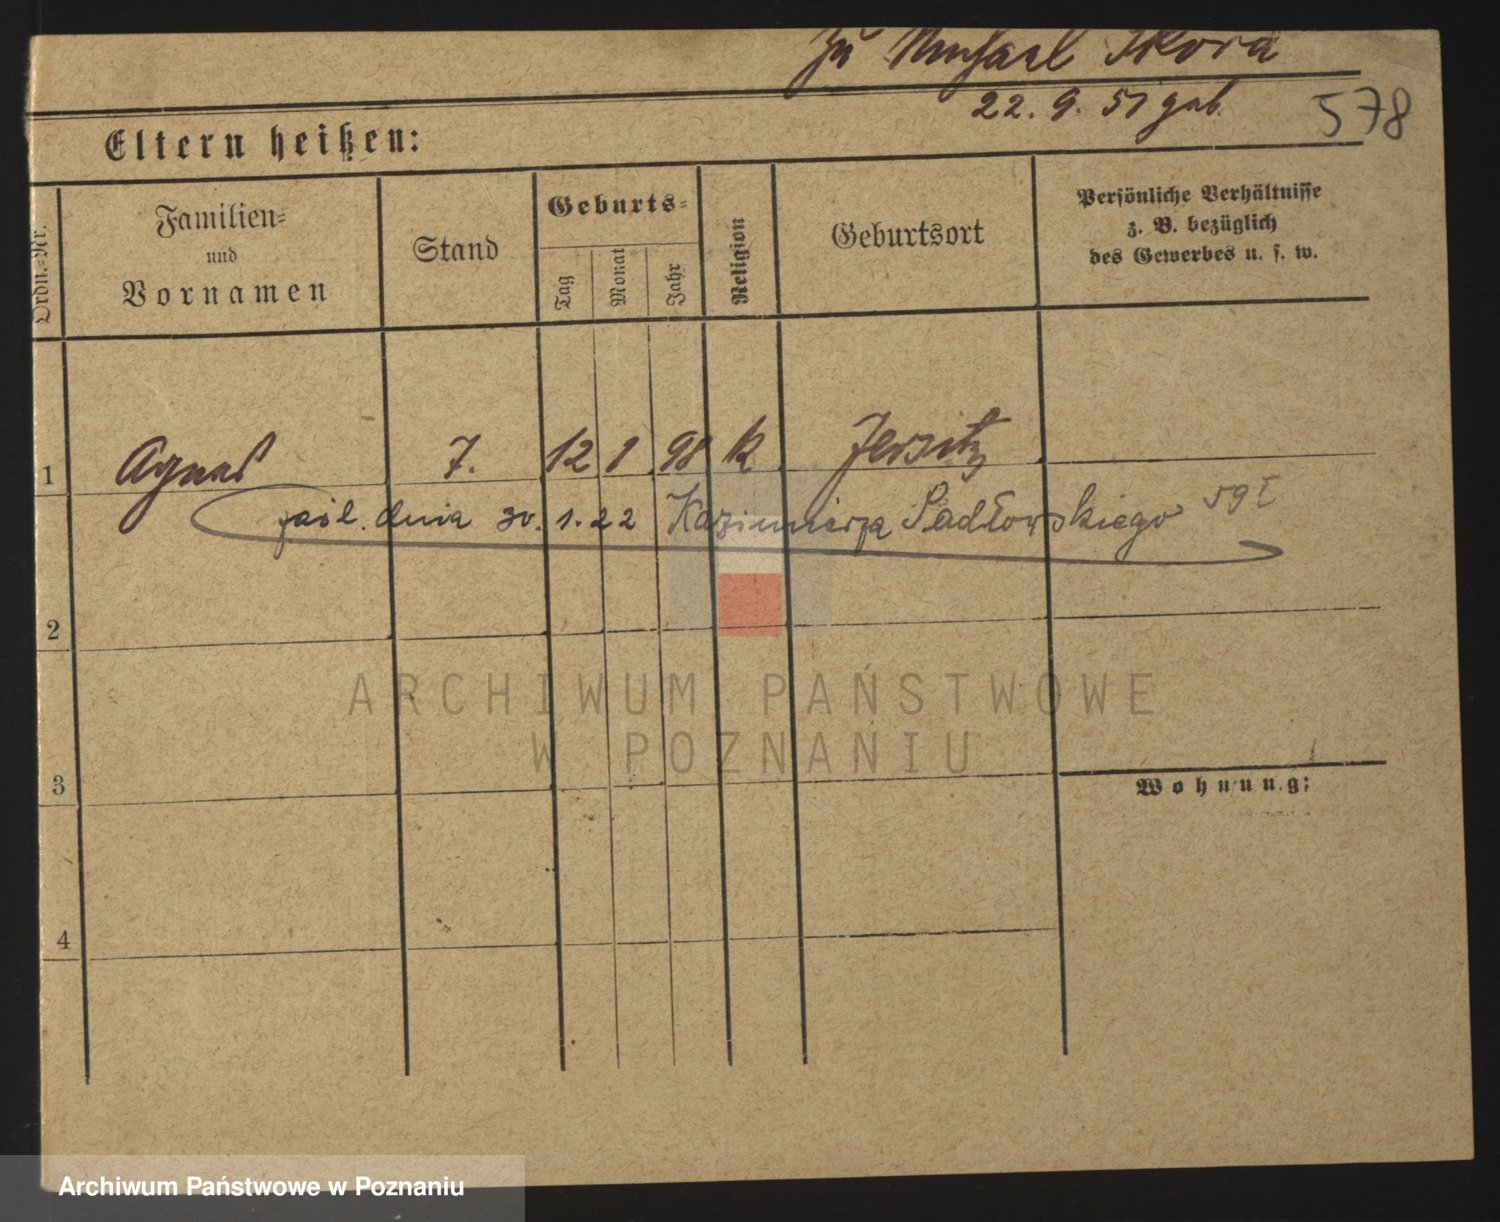 Zu Michael Skora
22. 9. 51 geb.
578
Eltern heißen:
Ordn.-Nr.
Familien-
und
Vornamen
Stand
Geburts-
Tag
Monat
Jahr
Religion
Geburtsort
Persönliche Verhältnisse
z. B. bezüglich
des Gewerbes u. s. w.
1 Agnes T. 12 1 98 k Jersitz
zaśl. dnia 30.1.22 Kazimierza Sadłowskiego 59 I
2
ARCHIWUM PAŃSTWOWE
W POZNANIU
3
Wohnung:
4
Archiwum Państwowe w Poznaniu